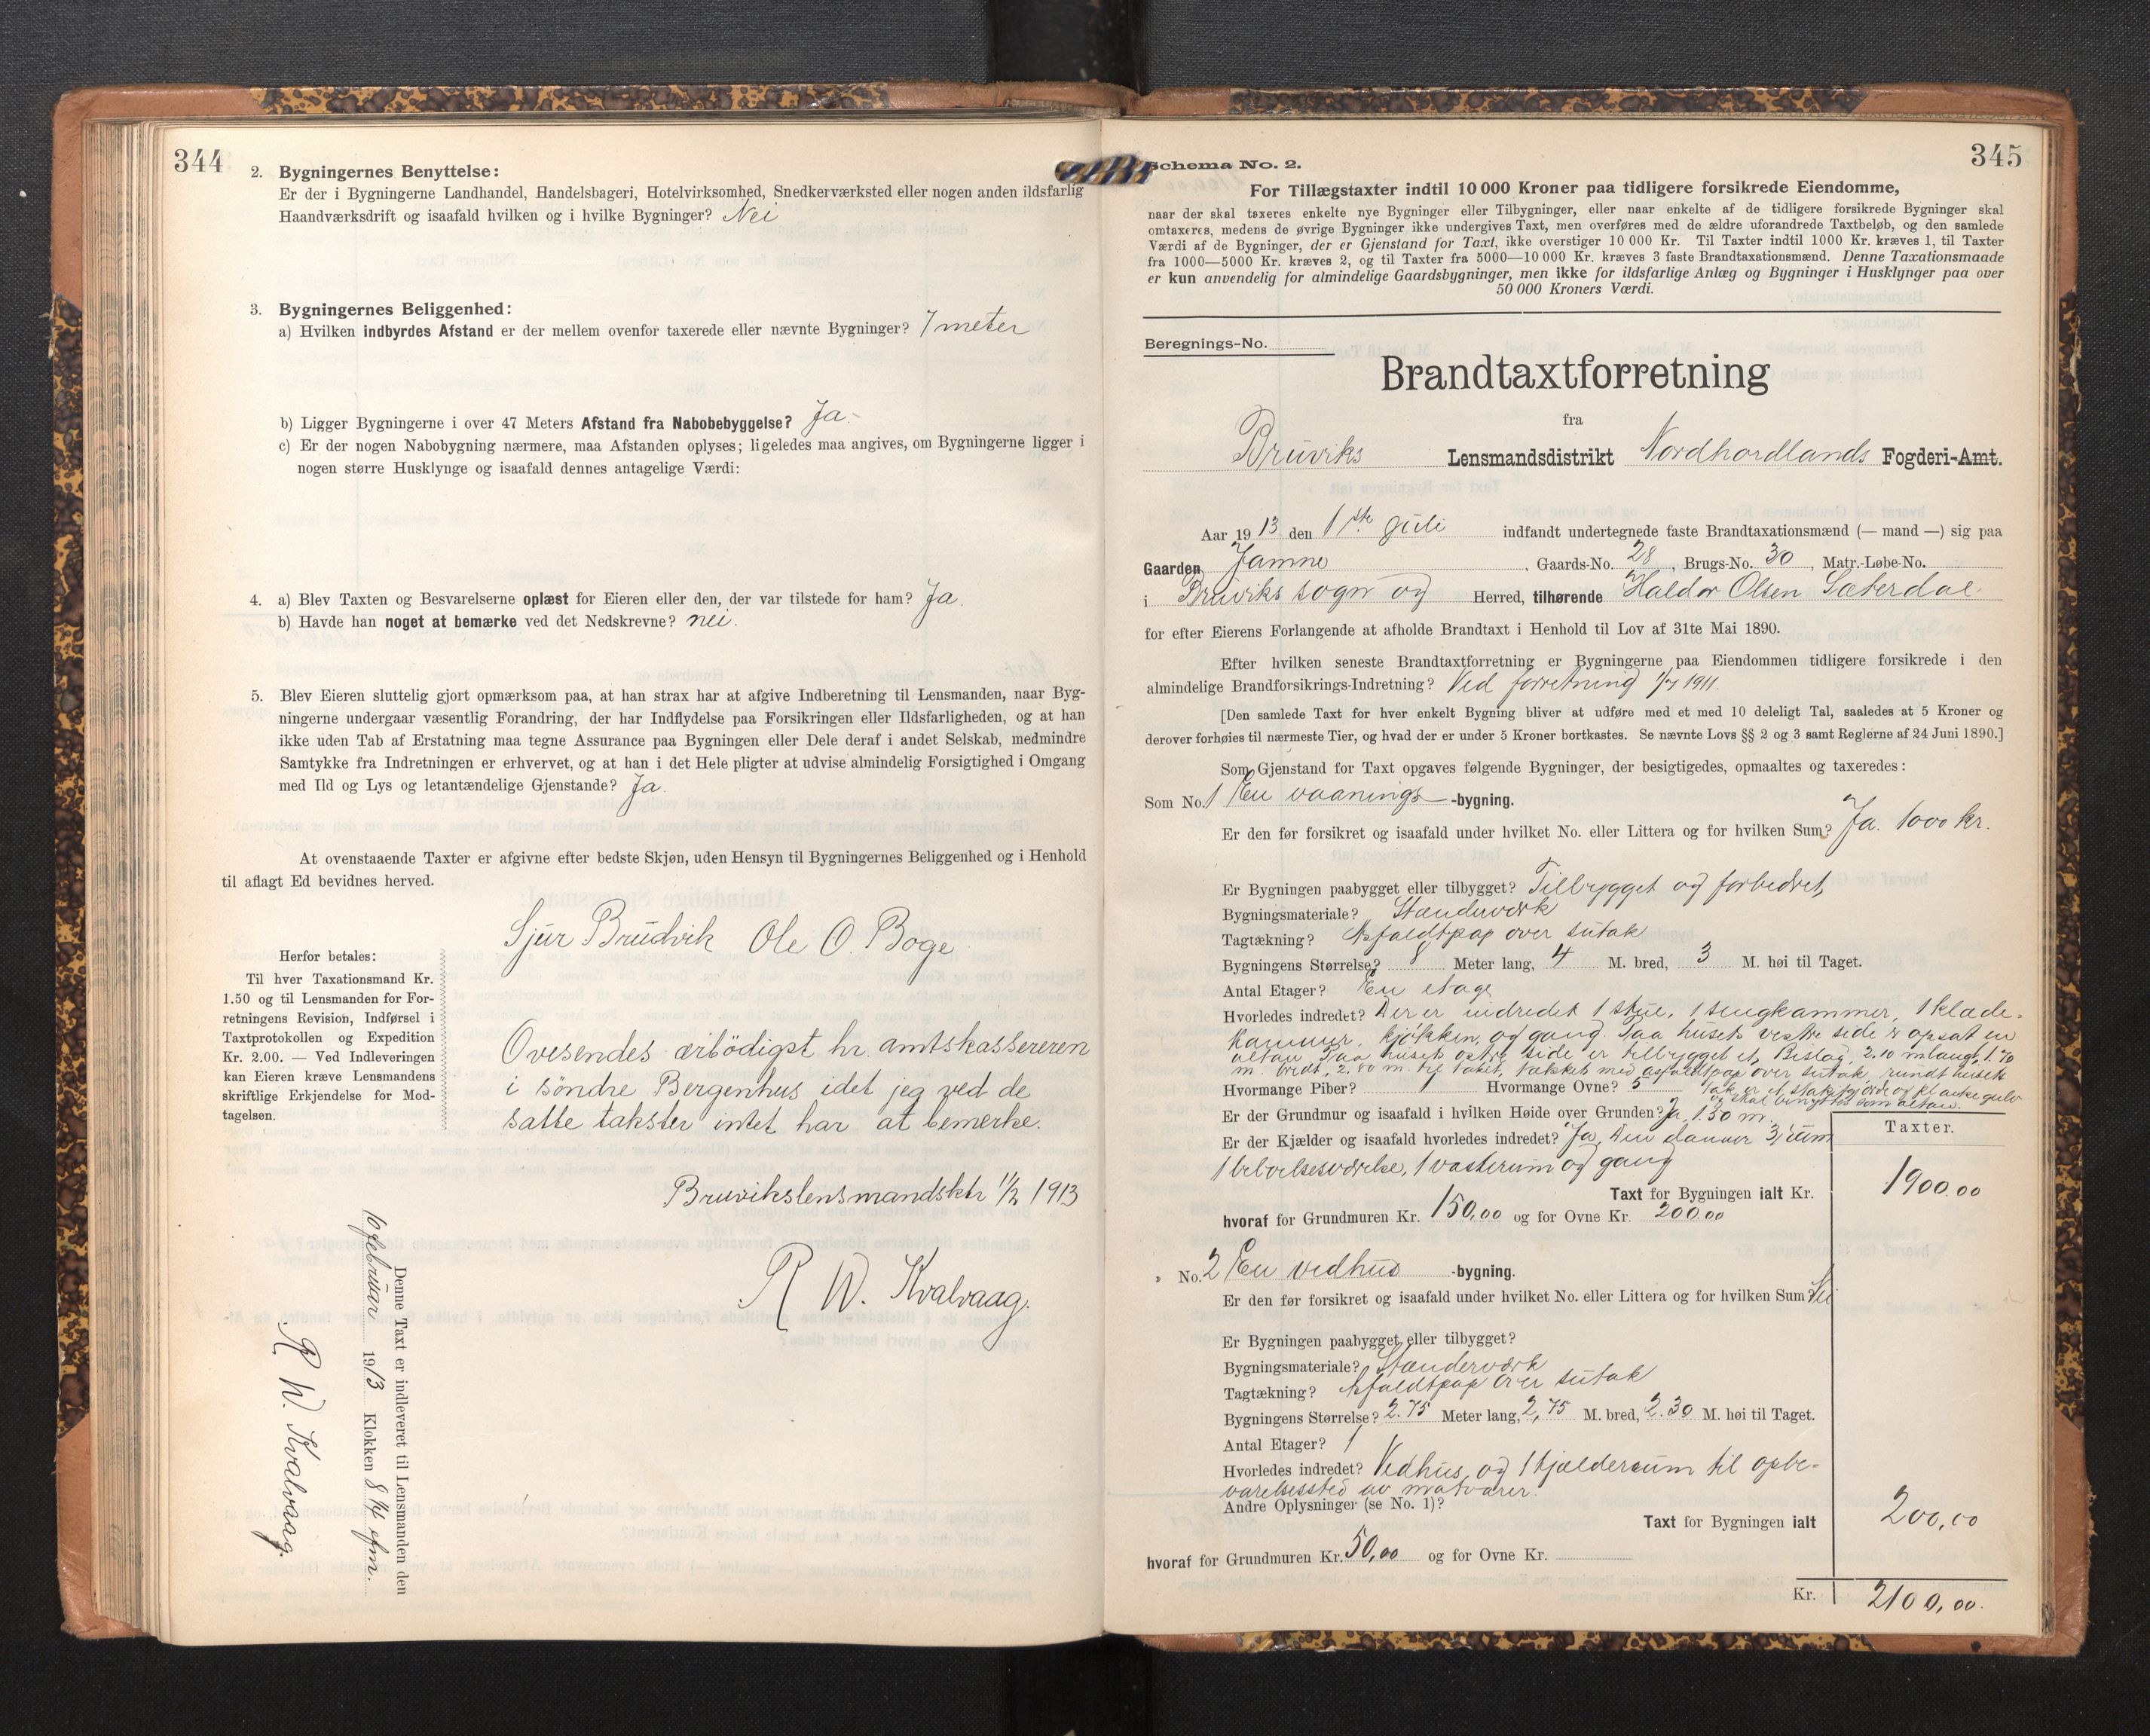 344
2. Bygningernes Benyttelse:
Er der i Bygningerne Landhandel, Handelsbageri, Hotelvirksomhed, Snedkerværksted eller nogen anden ildsfarlig
Haandværksdrift og isaafald hvilken og i hvilke Bygninger? Nei
3. Bygningernes Beliggenhed:
a) Hvilken indbyrdes Afstand er der mellem ovenfor taxerede eller nævnte Bygninger? 7 meter
b) Ligger Bygningerne i over 47 Meters Afstand fra Nabobebyggelse? Ja.
c) Er der nogen Nabobygning nærmere, maa Afstanden oplyses; ligeledes maa angives, om Bygningerne ligger i
nogen større Husklynge og isaafald dennes antagelige Værdi:
4. a) Blev Taxten og Besvarelserne oplæst for Eieren eller den, der var tilstede for ham? Ja.
b) Havde han noget at bemærke ved det Nedskrevne? nei.
5. Blev Eieren sluttelig gjort opmærksom paa, at han strax har at afgive Indberetning til Lensmanden, naar Byg-
ningerne undergaar væsentlig Forandring, der har Indflydelse paa Forsikringen eller Ildsfarligheden, og at han
ikke uden Tab af Erstatning maa tegne Assurance paa Bygningen eller Dele deraf i andet Selskab, medmindre
Samtykke fra Indretningen er erhvervet, og at han i det Hele pligter at udvise almindelig Forsigtighed i Omgang
med Ild og Lys og letantændelige Gjenstande? Ja.
At ovenstaaende Taxter er afgivne efter bedste Skjøn, uden Hensyn til Bygningernes Beliggenhed og i Henhold
til aflagt Ed bevidnes herved.
Sjur Brudvik Ole O. Boge
Herfor betales:
Til hver Taxationsmand Kr.
1.50 og til Lensmanden for For-
retningens Revision, Indførsel i
Taxtprotokollen og Expedition
Kr. 2.00. — Ved Indleveringen
kan Eieren kræve Lensmandens
skriftlige Erkjendelse for Mod-
tagelsen.
Ovesendes ærbödigst hr. amtskassereren
i søndre Bergenhus idet jeg ved de
satte takster intet har at bemerke.
Bruvikslensmandsktr 11/2 1913
R W. Kvalvaag.
Denne Taxt er indleveret til Lensmanden den
10 februar 1913 Klokken 8 1/4 efm.
R W. Kvalvaag.
345
Schema No. 2.
For Tillægstaxter indtil 10 000 Kroner paa tidligere forsikrede Eiendomme,
naar der skal taxeres enkelte nye Bygninger eller Tilbygninger, eller naar enkelte af de tidligere forsikrede Bygninger skal
omtaxeres, medens de øvrige Bygninger ikke undergives Taxt, men overføres med de ældre uforandrede Taxtbeløb, og den samlede
Værdi af de Bygninger, der er Gjenstand for Taxt, ikke overstiger 10 000 Kr. Til Taxter indtil 1000 Kr. kræves 1, til Taxter
fra 1000—5000 Kr. kræves 2, og til Taxter fra 5000—10 000 Kr. kræves 3 faste Brandtaxationsmænd. Denne Taxationsmaade
er kun anvendelig for almindelige Gaardsbygninger, men ikke for ildsfarlige Anlæg og Bygninger i Husklynger paa over
50 000 Kroners Værdi.
Beregnings-No.
Brandtaxtforretning
fra
Bruviks Lensmandsdistrikt Nordhordlands Fogderi-Amt.
Aar 1913 den 1ste juli indfandt undertegnede faste Brandtaxationsmænd (— mand —) sig paa
Gaarden Jamne, Gaards-No. 28, Brugs-No. 30, Matr.-Løbe-No.
i Bruviks sogn og Herred, tilhørende Haldor Olsen Sæterdal.
for efter Eierens Forlangende at afholde Brandtaxt i Henhold til Lov af 31te Mai 1890.
Efter hvilken seneste Brandtaxtforretning er Bygningerne paa Eiendommen tidligere forsikrede i den
almindelige Brandforsikrings-Indretning? Ved forretning 1/7 1911.
[Den samlede Taxt for hver enkelt Bygning bliver at udføre med et med 10 deleligt Tal, saaledes at 5 Kroner og
derover forhøies til nærmeste Tier, og hvad der er under 5 Kroner bortkastes. Se nævnte Lovs §§ 2 og 3 samt Reglerne af 24 Juni 1890.]
Som Gjenstand for Taxt opgaves følgende Bygninger, der besigtigedes, opmaaltes og taxeredes:
Som No. 1 En vaanings-bygning.
Er den før forsikret og isaafald under hvilket No. eller Littera og for hvilken Sum? Ja. 1000 kr.
Er Bygningen paabygget eller tilbygget? Tilbygget og forbedret,
Bygningsmateriale? Stænderverk
Tagtækning? Asfaldtpap over sutak
Bygningens Størrelse? 8 Meter lang, 4 M. bred, 3 M. høi til Taget.
Antal Etager? En etage
Hvorledes indredet? Der er indredet 1 stue, 1 sengkammer, 1 klæde-
kammer, kjøkken, og gang. Paa husets vestre side er opsat en
altan. Paa husets østre side er tilbygget et Bislag, 2.10 m lang, 1.70
m. bredt, 2.00 m. til taket, tækket med asfaldtpap over sutak, rundt husets
Hvormange Piber? 1 Hvormange Ovne? 5 tak er et stakitgjerde og plankegulv
og skal benyttes som altan.
Er der Grundmur og isaafald i hvilken Høide over Grunden? Ja, 1.50 m.
Er der Kjælder og isaafald hvorledes indredet? Ja, Den danner 3 rum
1 beboelsesværelse, 1 vaskerum og gang
Taxter.
Taxt for Bygningen ialt Kr. 1900.00
hvoraf for Grundmuren Kr. 150,00 og for Ovne Kr. 200.00
No. 2 En vedhus -bygning.
Er den før forsikret og isaafald under hvilket No. eller Littera og for hvilken Sum? Nei
Er Bygningen paabygget eller tilbygget?
Bygningsmateriale? Stænderværk
Tagtækning? Asfaldtpap over sutak
Bygningens Størrelse? 2.75 Meter lang, 2,75 M. bred, 2.30 M. høi til Taget.
Antal Etager? 1
Hvorledes indredet? Vedhus, og 1 kjælderrum til opbe-
varelsessted av matvarer.
Andre Oplysninger (se No. 1)?
Taxt for Bygningen ialt 200,00
hvoraf for Grundmuren Kr. 50,00 og for Ovne Kr.
Kr. 2100,00.